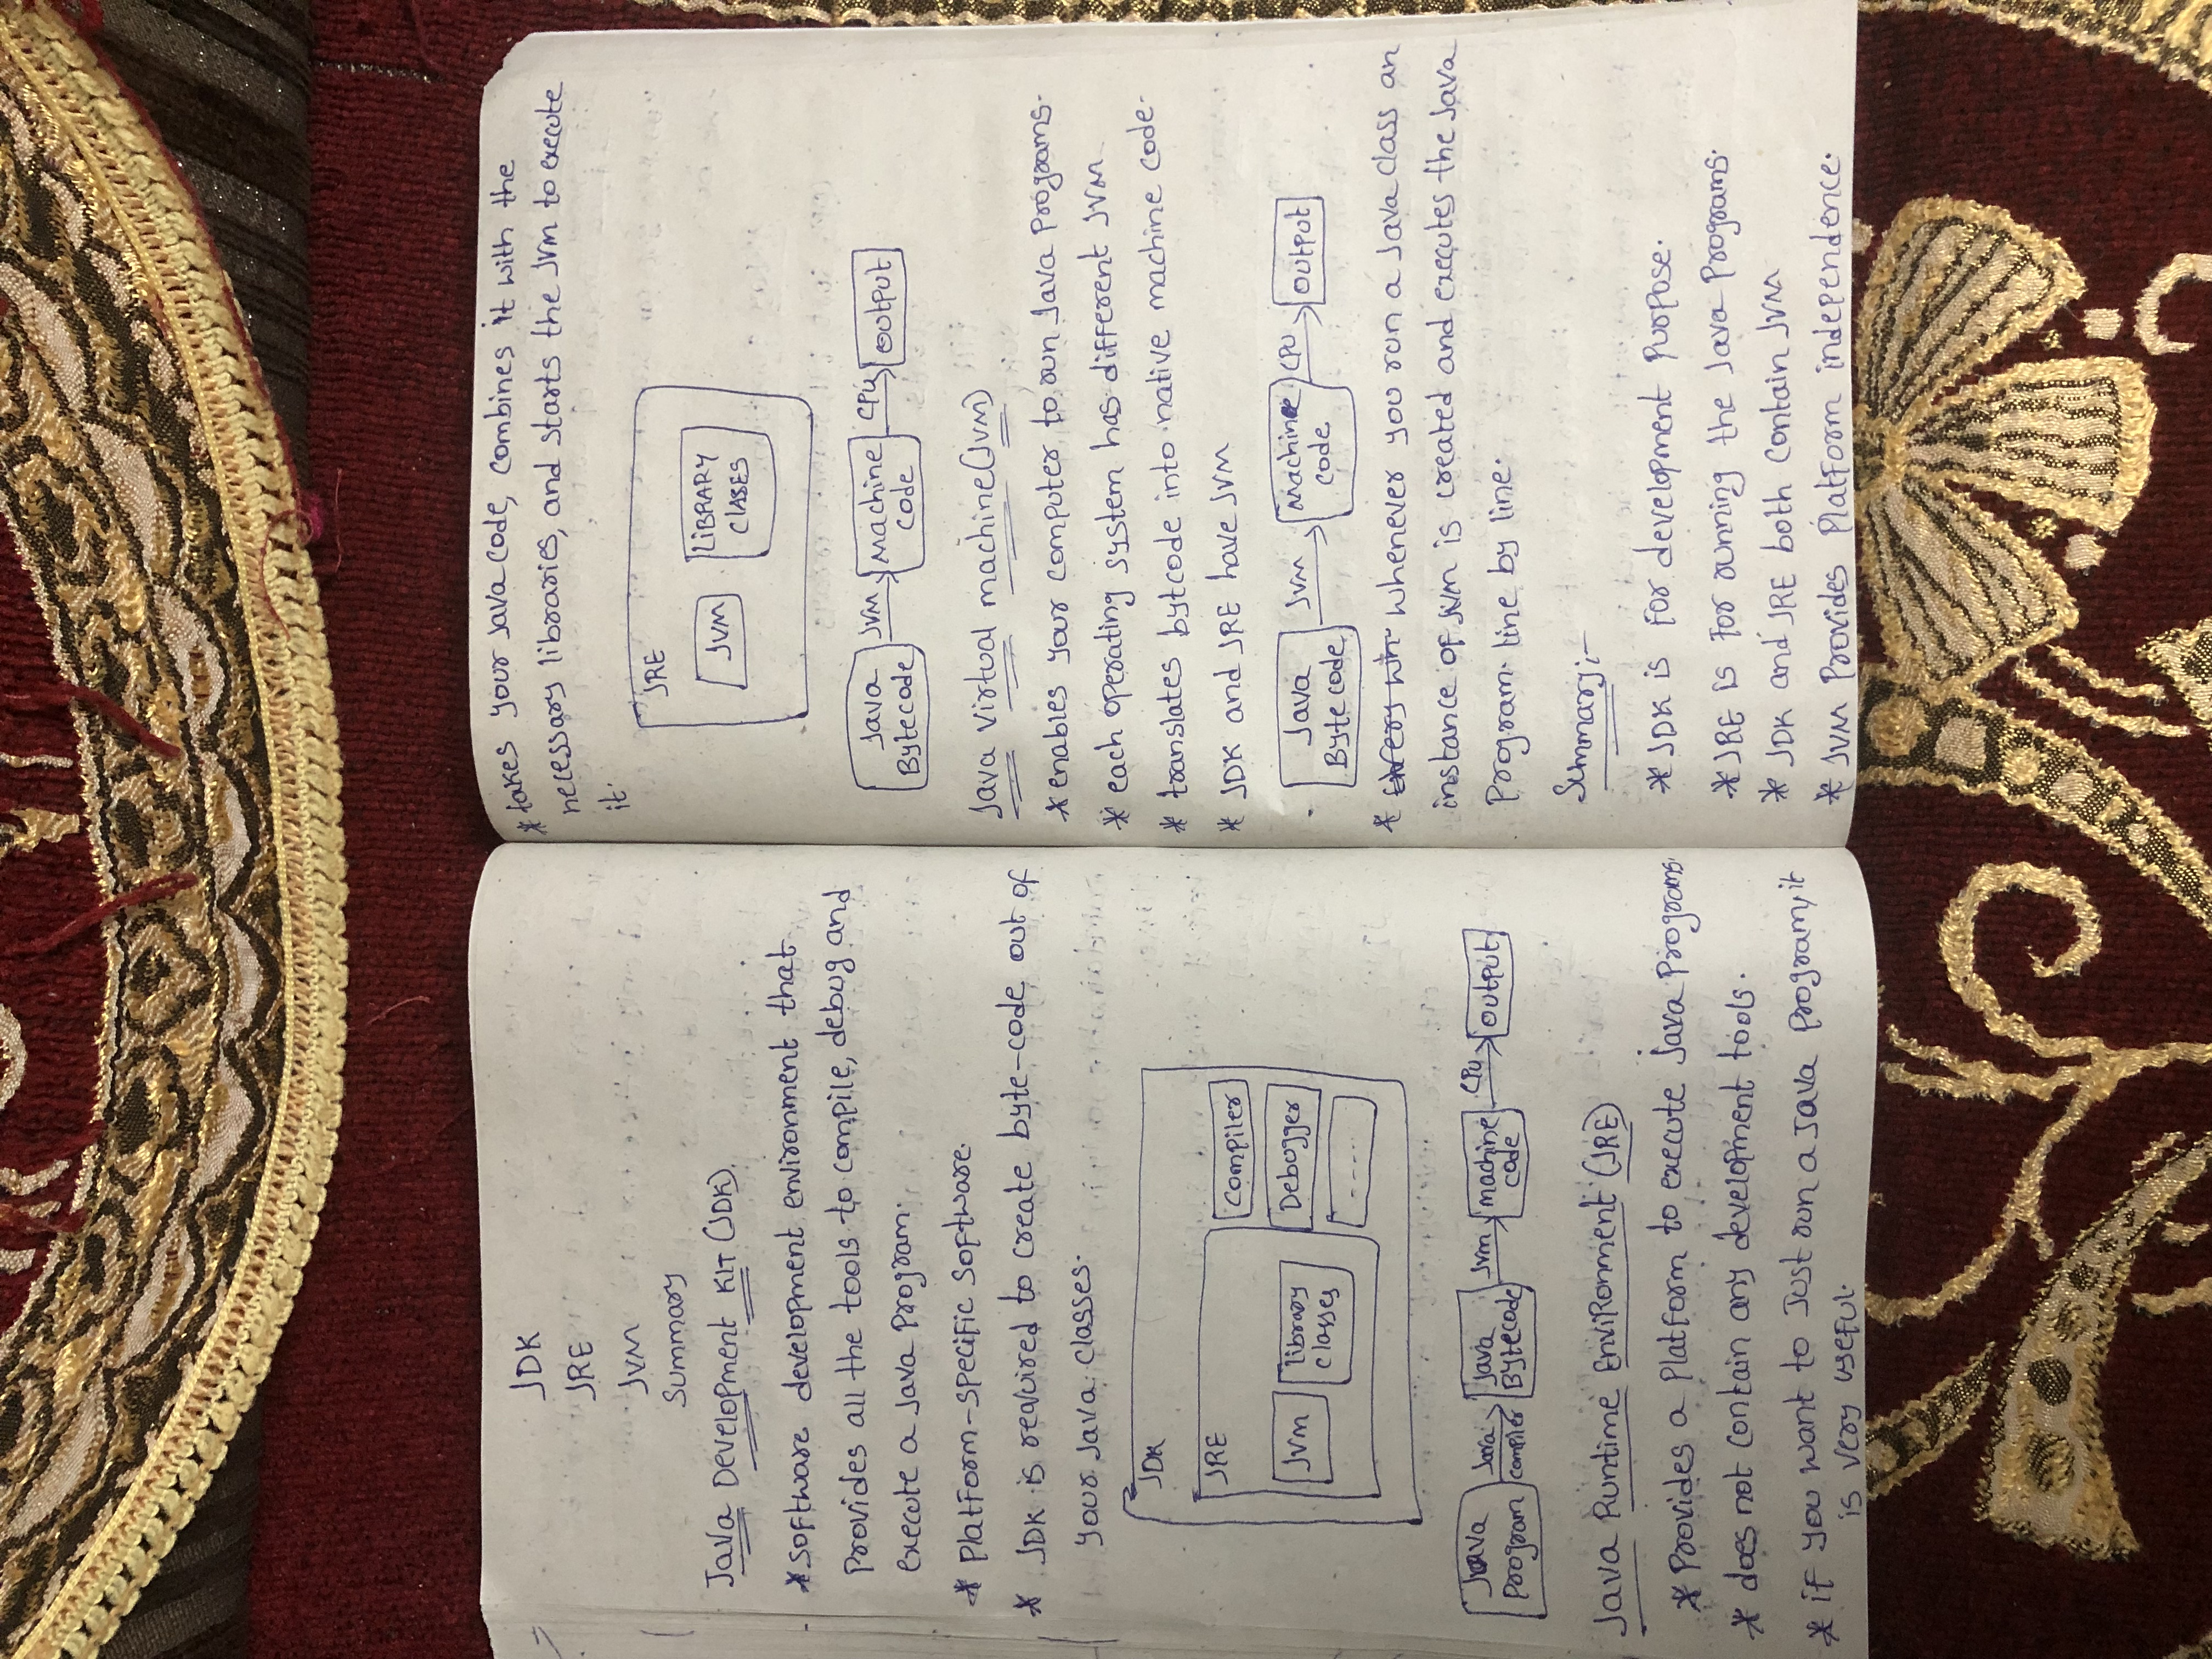 JDK
JRE
JVM
Summary
Java Development KIT (JDK).
* software development environment that
provides all the tools to compile, debug and
execute a Java Program.
* Platform-specific software.
* JDK is required to create byte-code out of
your Java classes.
JDK
JRE
Compiler
JVM
library
classes
Debugger
-----
Java
Program
Java
compiler
Java
Bytecode
JVM
machine
code
CPU
output
Java Runtime Environment (JRE)
* Provides a Platform to execute java Programs.
* does not contain any development tools.
* if you want to Just run a Java Program, it
is very useful.
* takes your Java code, combines it with the
necessary libraries, and starts the JVM to execute
it.
JRE
JVM
LIBRARY
ClASSES
Java
Bytecode
JVM
Machine
code
CPU
output
Java Virtual machine (JVM)
* enables your computer to run Java Programs.
* each operating system has different JVM
* translates bytcode into native machine code.
* JDK and JRE have JVM
Java
Byte code
JVM
Machine
code
CPU
output
* whenever you run a Java class an
instance of JVM is created and executes the Java
Program line by line.
Summary:-
* JDK is for development Purpose.
* JRE is for running the Java Programs.
* JDK and JRE both contain JVM
* JVM Provides Platform independence.